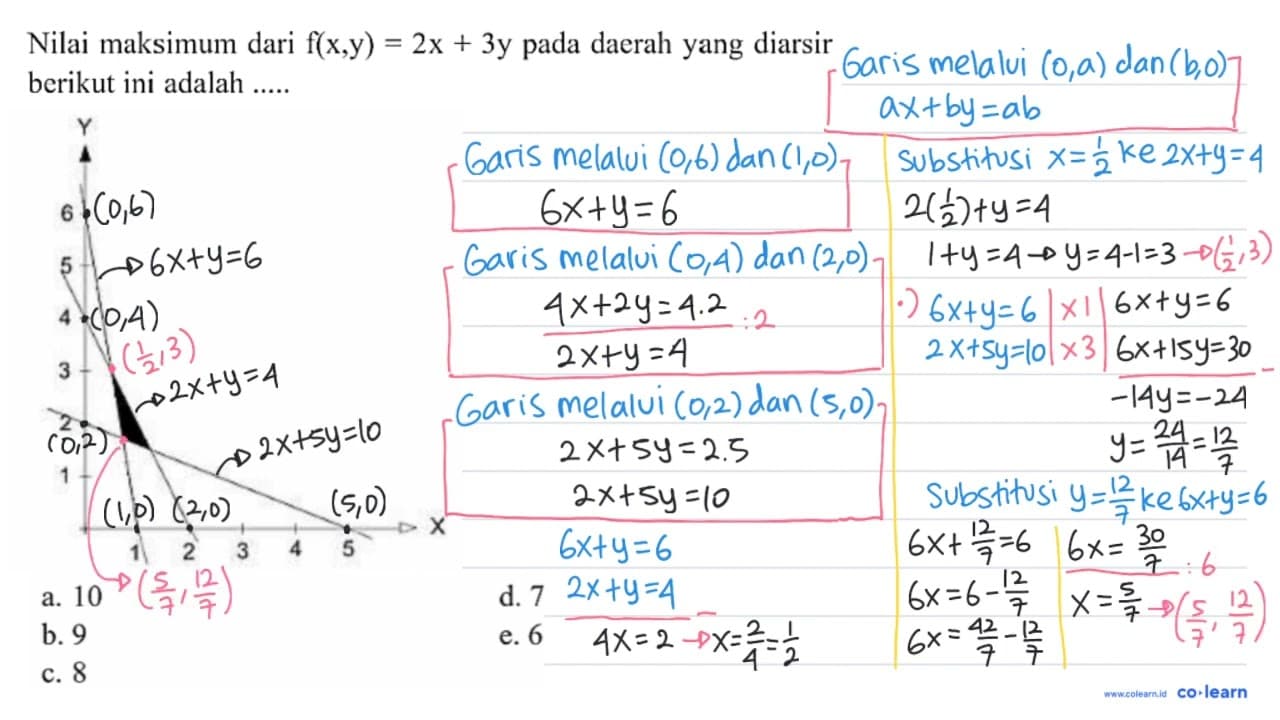 Nilai maksimum dari f(x,y) = 2x + 3y pada daerah yang diarsir
berikut ini adalah .....
Y
6 (0,6)
5 6x+y=6
4 (0,4)
3 (1/2,3)
2x+y=4
2
(0,2) 2x+5y=10
1
(1,0) (2,0) (5,0)
X
1 2 3 4 5
(5/7, 12/7)
a. 10
b. 9
c. 8
d. 7
e. 6
Garis melalui (0,a) dan (b,0)
ax+by=ab
Garis melalui (0,6) dan (1,0)
6x+y=6
Garis melalui (0,4) dan (2,0)
4x+2y=4.2 :2
2x+y=4
Garis melalui (0,2) dan (5,0)
2x+5y=2.5
2x+5y=10
6x+y=6
2x+y=4 -
4x=2 → x=2/4=1/2
Substitusi x=1/2 ke 2x+y=4
2(1/2)+y=4
1+y=4 → y=4-1=3 → (1/2,3)
·) 6x+y=6 |x1| 6x+y=6
2x+5y=10 |x3| 6x+15y=30 -
-14y=-24
y=24/14=12/7
Substitusi y=12/7 ke 6x+y=6
6x+12/7=6
6x=6-12/7
6x=42/7-12/7
6x=30/7 :6
x=5/7 → (5/7, 12/7)
www.colearn.id co·learn